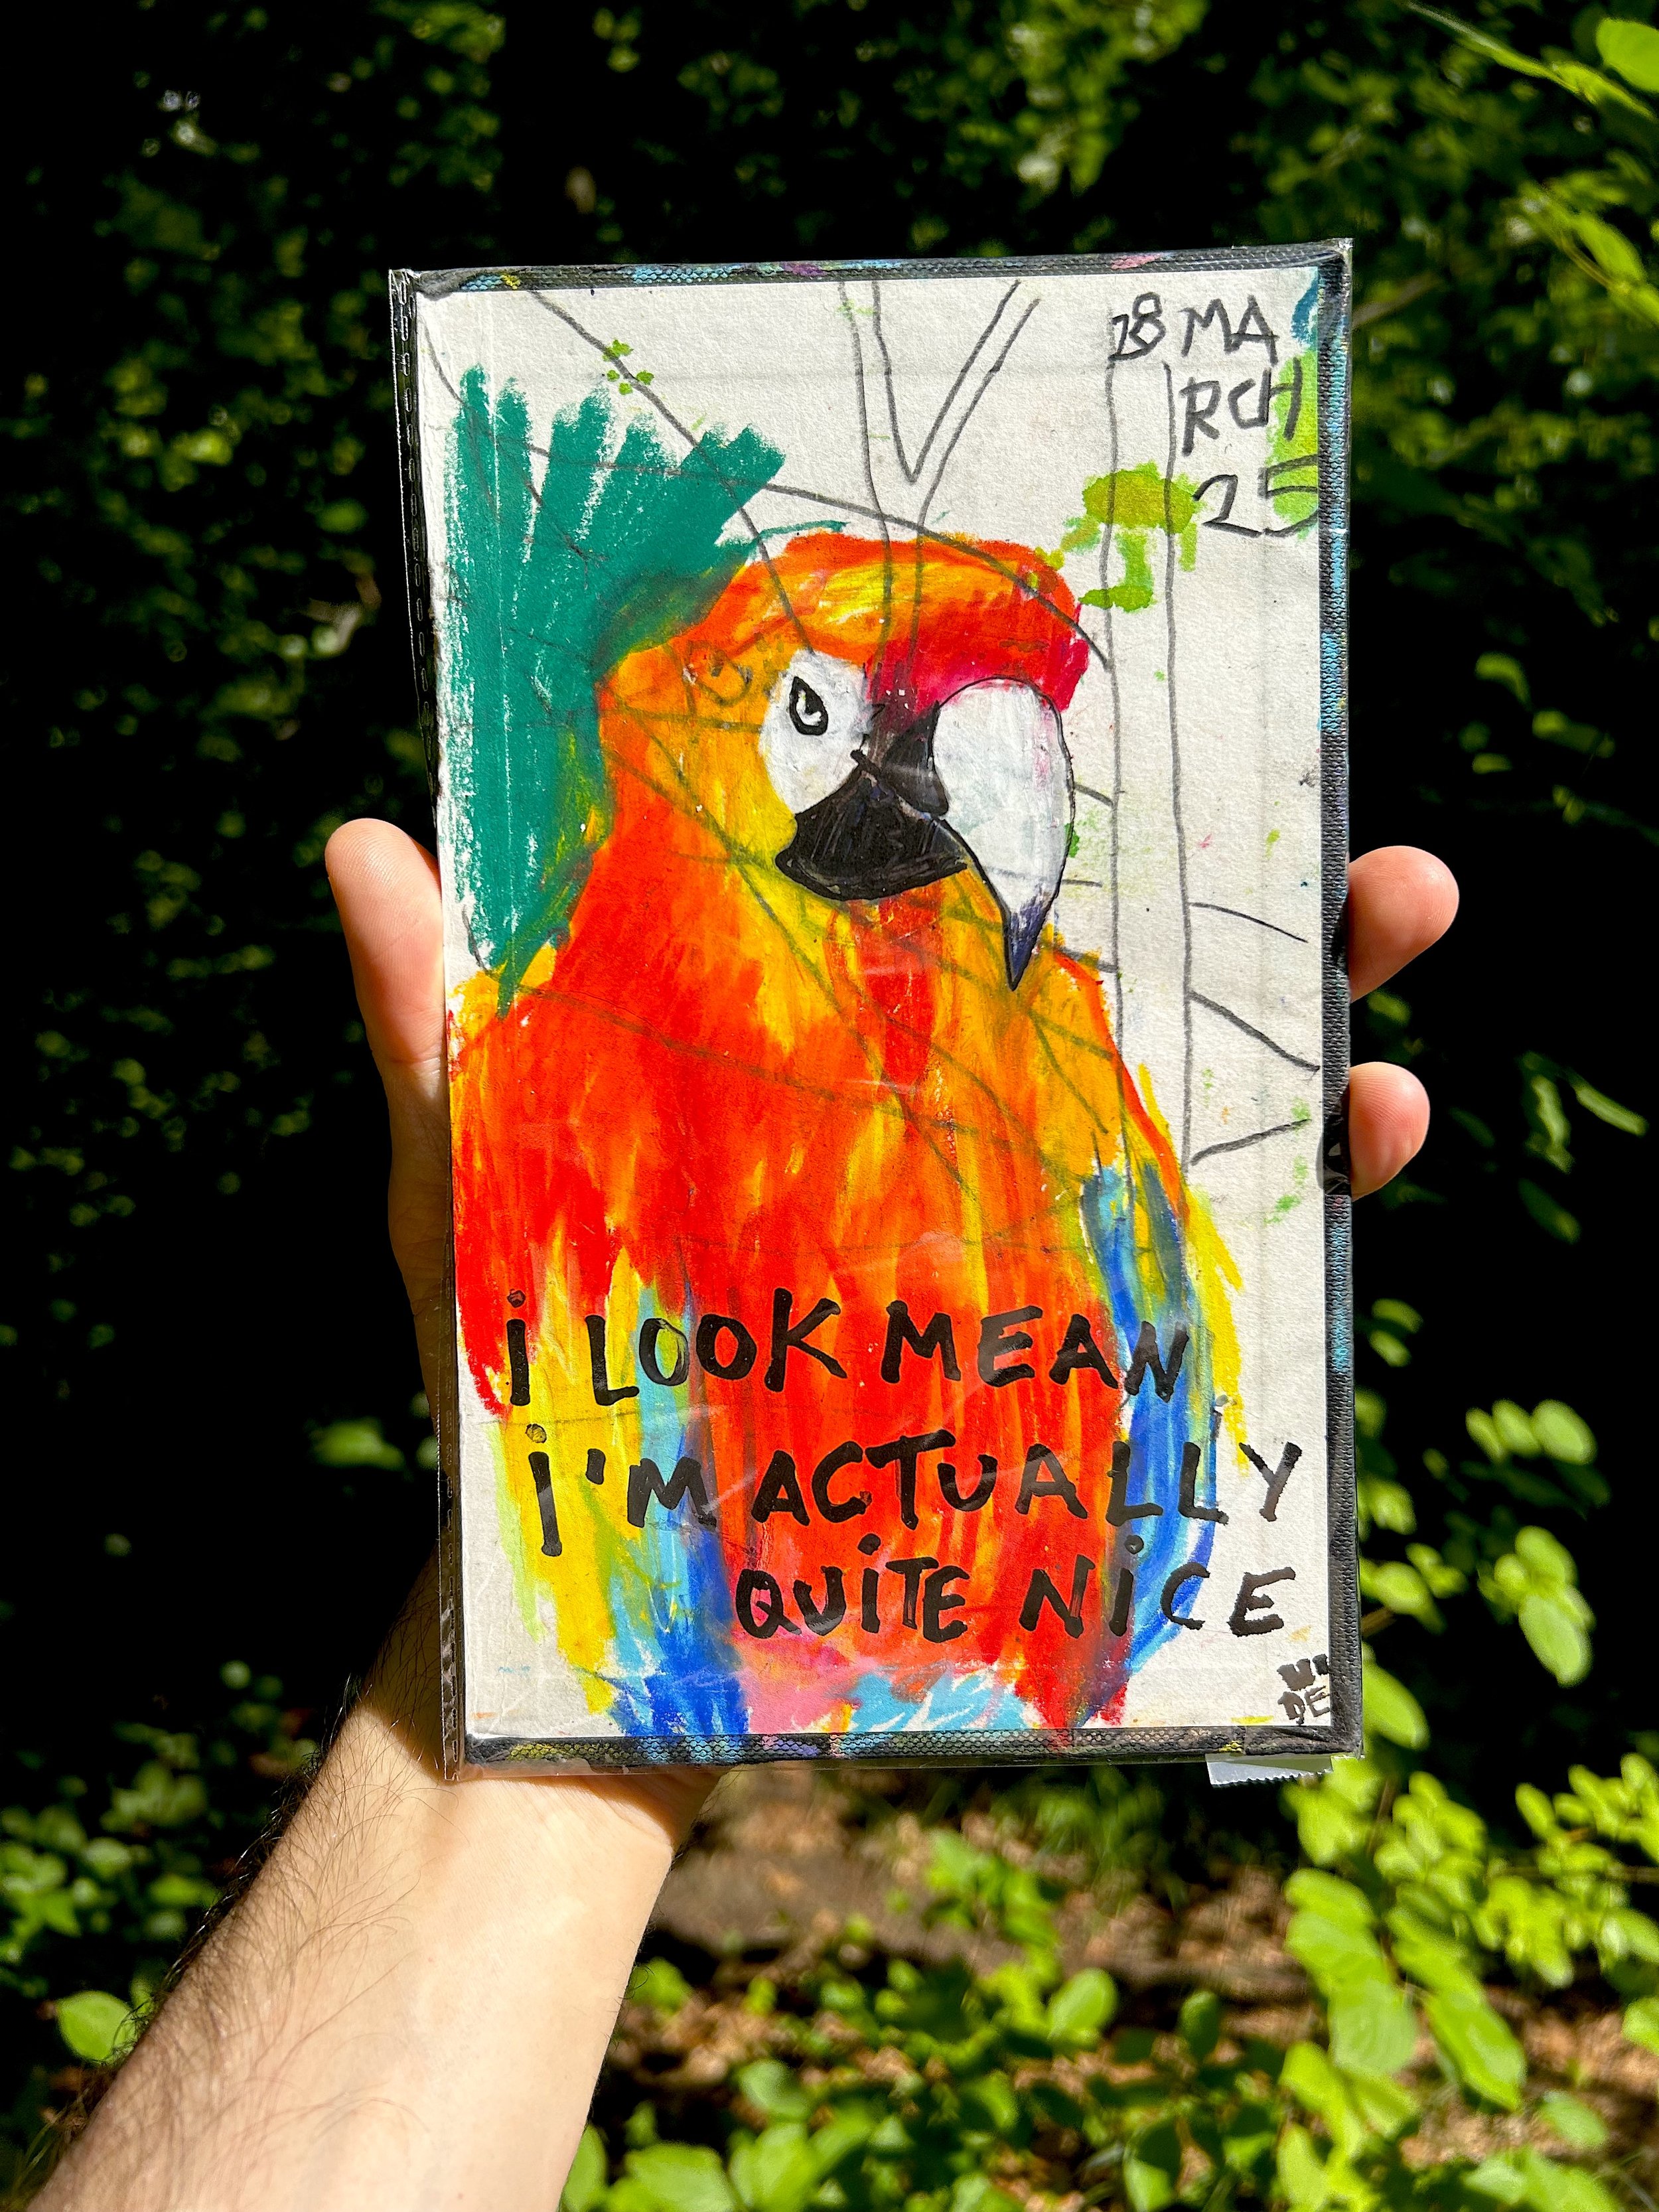 28 MA
RCH
25
i LOOK MEAN
i'M ACTUALLY
QUiTE NiCE
DE